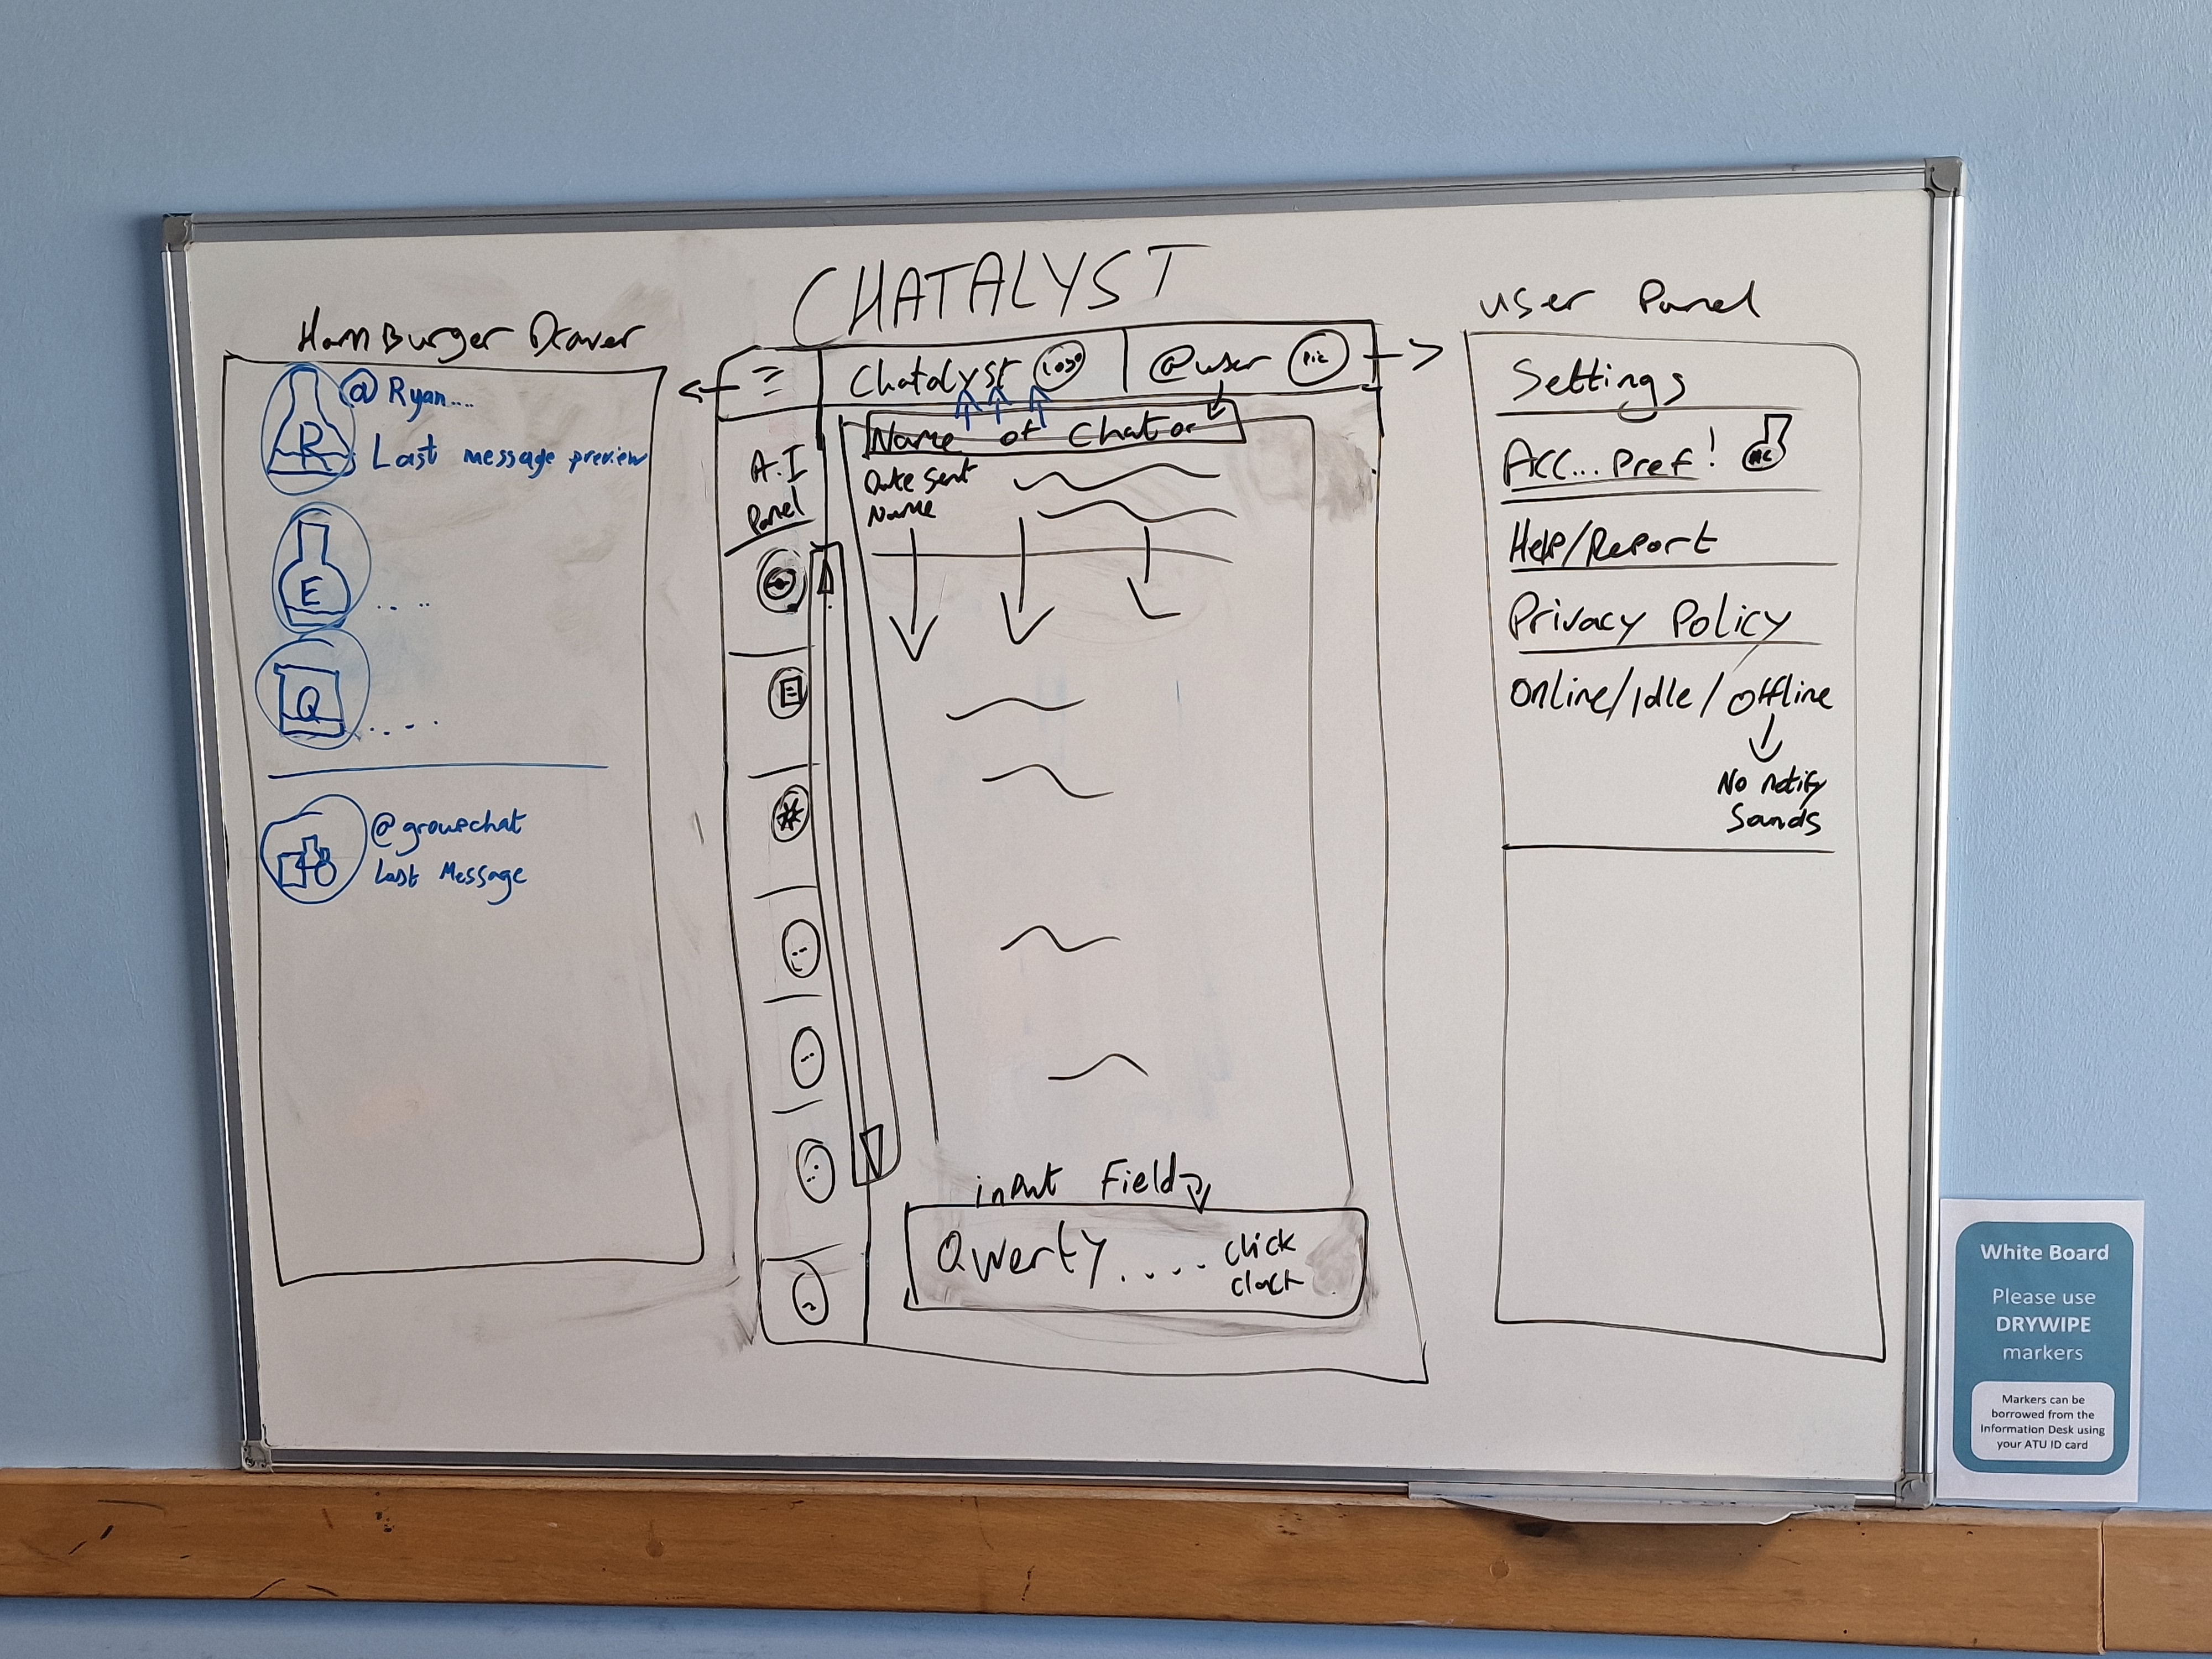 CHATALYST
HamBurger Drawer
@ Ryan....
R
Last message preview
E
....
Q
....
@groupchat
Last Message
Chatalyst Logo
@user Pic
Name of Chat or
A.I
Panel
Date Sent
Name
input Field
Qwerty.....
click
clack
User Panel
Settings
Acc... Pref!
Help/Report
Privacy Policy
Online/Idle/Offline
No notify
Sounds
White Board
Please use
DRYWIPE
markers
Markers can be
borrowed from the
Information Desk using
your ATU ID card